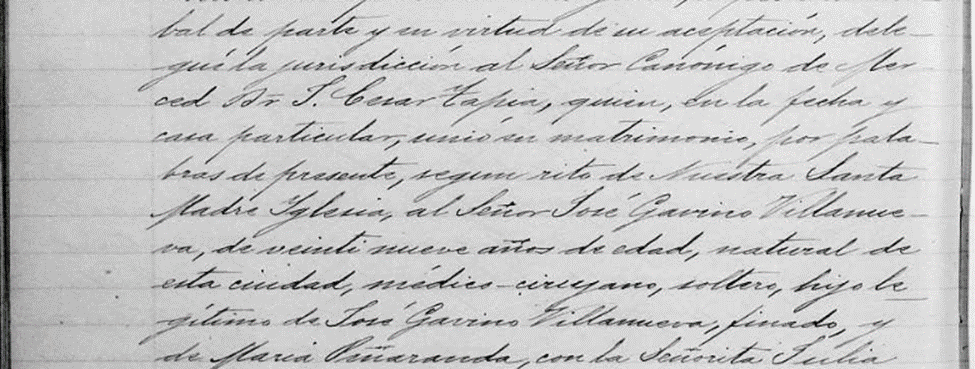 bal de parte y en virtud de su aceptación, dele-
gué la jurisdicción al Señor Canónigo de Mer
ced Dr J. Cesar Tapia, quien, en la fecha y
casa particular, unió en matrimonio, por pala-
bras de presente, segun rito de Nuestra Santa
Madre Yglesia, al Señor José Gavino Villanue-
va, de veinti nueve años de edad, natural de
esta ciudad, médico-cirujano, soltero, hijo le
gítimo de José Gavino Villanueva, finado, y
de Maria Peñaranda, con la Señorita Julia